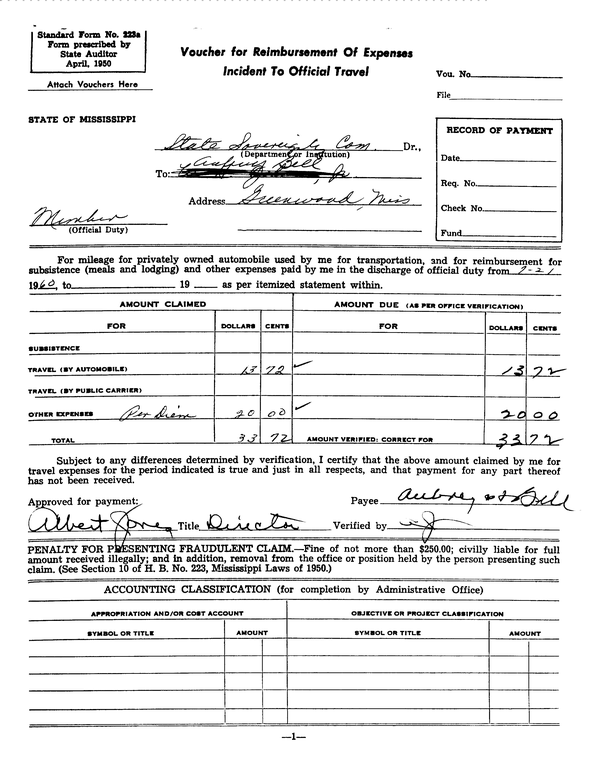 Standard Form No. 223a
Form prescribed by
State Auditor
April, 1950
Attach Vouchers Here
Voucher for Reimbursement Of Expenses
Incident To Official Travel
Vou. No.
File
STATE OF MISSISSIPPI
State Sovereignty Com. Dr.,
(Department or Institution)
To: Aubrey Bell
Address Greenwood, Miss
Member
(Official Duty)
RECORD OF PAYMENT
Date
Req. No.
Check No.
Fund
For mileage for privately owned automobile used by me for transportation, and for reimbursement for
subsistence (meals and lodging) and other expenses paid by me in the discharge of official duty from 7-21
1960, to 19 as per itemized statement within.
AMOUNT CLAIMED AMOUNT DUE (AS PER OFFICE VERIFICATION)
FOR DOLLARS CENTS FOR DOLLARS CENTS
SUBSISTENCE
TRAVEL (BY AUTOMOBILE) 13 72 ✓ 13 72
TRAVEL (BY PUBLIC CARRIER)
OTHER EXPENSES Per Diem 20 00 ✓ 20 00
TOTAL 33 72 AMOUNT VERIFIED: CORRECT FOR 33 72
Subject to any differences determined by verification, I certify that the above amount claimed by me for
travel expenses for the period indicated is true and just in all respects, and that payment for any part thereof
has not been received.
Approved for payment: Payee Aubrey H Bell
Albert Jones Title Director Verified by
PENALTY FOR PRESENTING FRAUDULENT CLAIM.—Fine of not more than $250.00; civilly liable for full
amount received illegally; and in addition, removal from the office or position held by the person presenting such
claim. (See Section 10 of H. B. No. 223, Mississippi Laws of 1950.)
ACCOUNTING CLASSIFICATION (for completion by Administrative Office)
APPROPRIATION AND/OR COST ACCOUNT OBJECTIVE OR PROJECT CLASSIFICATION
SYMBOL OR TITLE AMOUNT SYMBOL OR TITLE AMOUNT
—1—